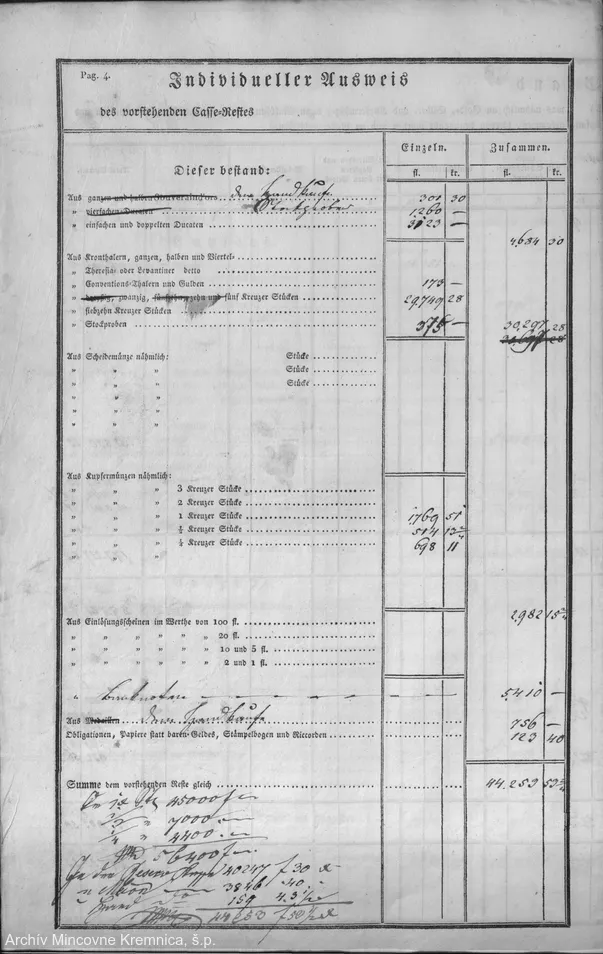 Pag. 4.
Individueller Ausweis
des vorstehenden Casse-Restes
Einzeln. Zusammen.
Dieser bestand: fl. kr. fl. kr.
Aus ganzen und halben Souveraind'ors 301 30
„ vierfachen Ducaten 1260 —
„ einfachen und doppelten Ducaten 3123 —
4684 30
Aus Kronthalern, ganzen, halben und Viertel-
„ Theresia- oder Levantiner detto
„ Conventions-Thalern und Gulden 173 —
„ dreißig, zwanzig, fünfzehn, zehn und fünf Kreuzer Stücken 29.749 28
„ siebzehn Kreuzer Stücken
„ Stockproben 375 — 30,297 28
Aus Scheidemünze nähmlich: Stücke
„ „ „ Stücke
„ „ „ Stücke
„ „ „
„ „ „
„ „ „
Aus Kupfermünzen nähmlich:
„ „ „ 3 Kreuzer Stücke
„ „ „ 2 Kreuzer Stücke
„ „ „ 1 Kreuzer Stücke 1769 51
„ „ „ ½ Kreuzer Stücke 514 13
„ „ „ ¼ Kreuzer Stücke 698 11
„ „ „
2982 15 ¾
Aus Einlösungsscheinen im Werthe von 100 fl.
„ „ „ „ „ 20 fl.
„ „ „ „ „ 10 und 5 fl.
„ „ „ „ „ 2 und 1 fl.
„ Banknoten 5410 —
Aus Medaillen 756 —
Obligationen, Papiere statt baren Geldes, Stämpelbogen und Riccorden 123 40
Summe dem vorstehenden Reste gleich 44.253 53 ¾
45000
7000
¼ „ 4400
56400
40247 f 30
3846 40
159 43
44253
Archív Mincovne Kremnica, š.p.